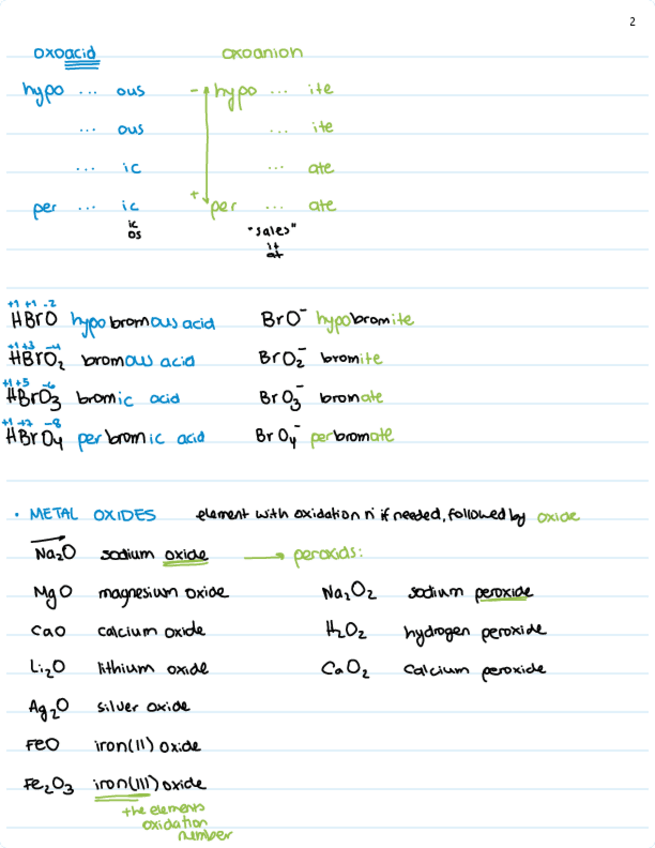 2
oxoacid oxoanion
hypo ... ous - hypo ... ite
... ous ... ite
... ic ... ate
per ... ic + per ... ate
ic "sales"
os it
at
+1 +1 -2
HBrO hypobromous acid BrO⁻ hypobromite
+1 +3 -4
HBrO₂ bromous acid BrO₂⁻ bromite
+1 +5 -6
HBrO₃ bromic acid BrO₃⁻ bronate
+1 +7 -8
HBrO₄ perbromic acid BrO₄⁻ perbromate
• METAL OXIDES element with oxidation n° if needed, followed by oxide
Na₂O sodium oxide → peroxids:
MgO magnesium oxide Na₂O₂ sodium peroxide
CaO calcium oxide H₂O₂ hydrogen peroxide
Li₂O lithium oxide CaO₂ calcium peroxide
Ag₂O silver oxide
FeO iron(II) oxide
Fe₂O₃ iron(III) oxide
the elements
oxidation
number